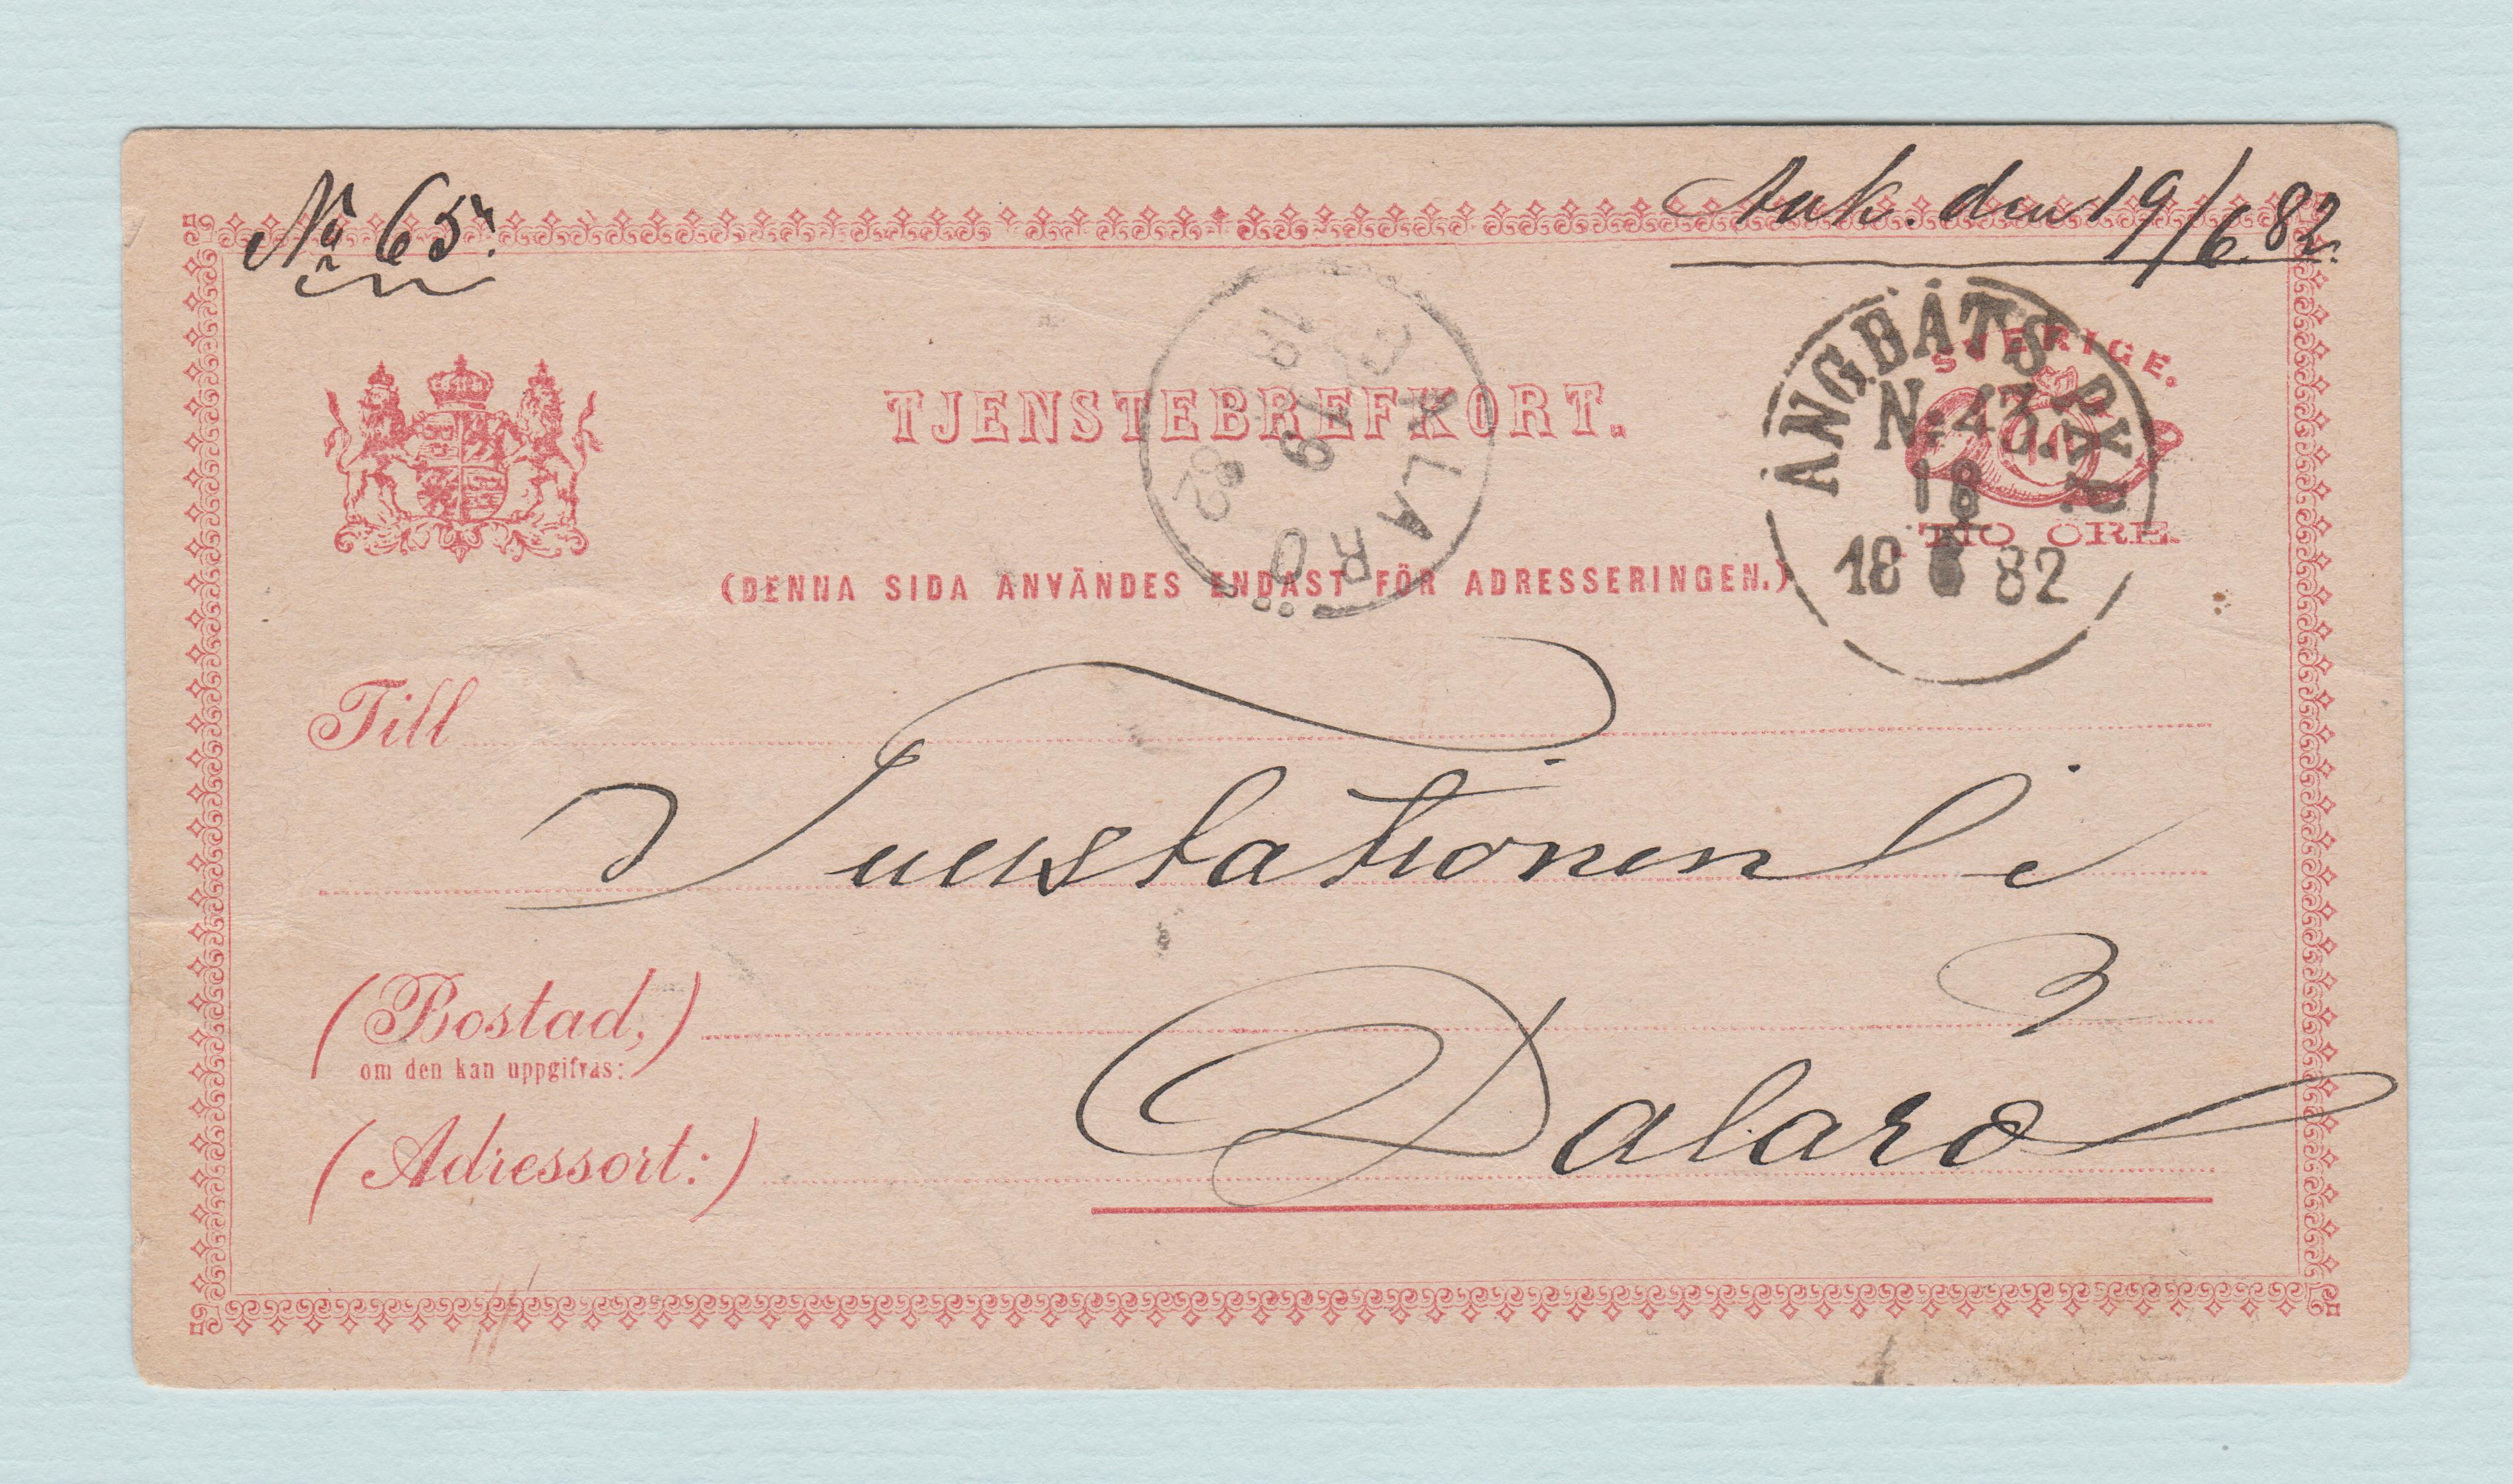 No 65.
Ank. den 19/6 82.
TJENSTEBREFKORT.
DALARÖ
18 6 82
SVERIGE.
10
TIO ÖRE.
ÅNGBÅTS PXP
No 43.
18 6
1882
(DENNA SIDA ANVÄNDES ENDAST FÖR ADRESSERINGEN.)
Till
Tullstationen i
(Bostad,)
om den kan uppgifvas:
(Adressort:)
Dalarö